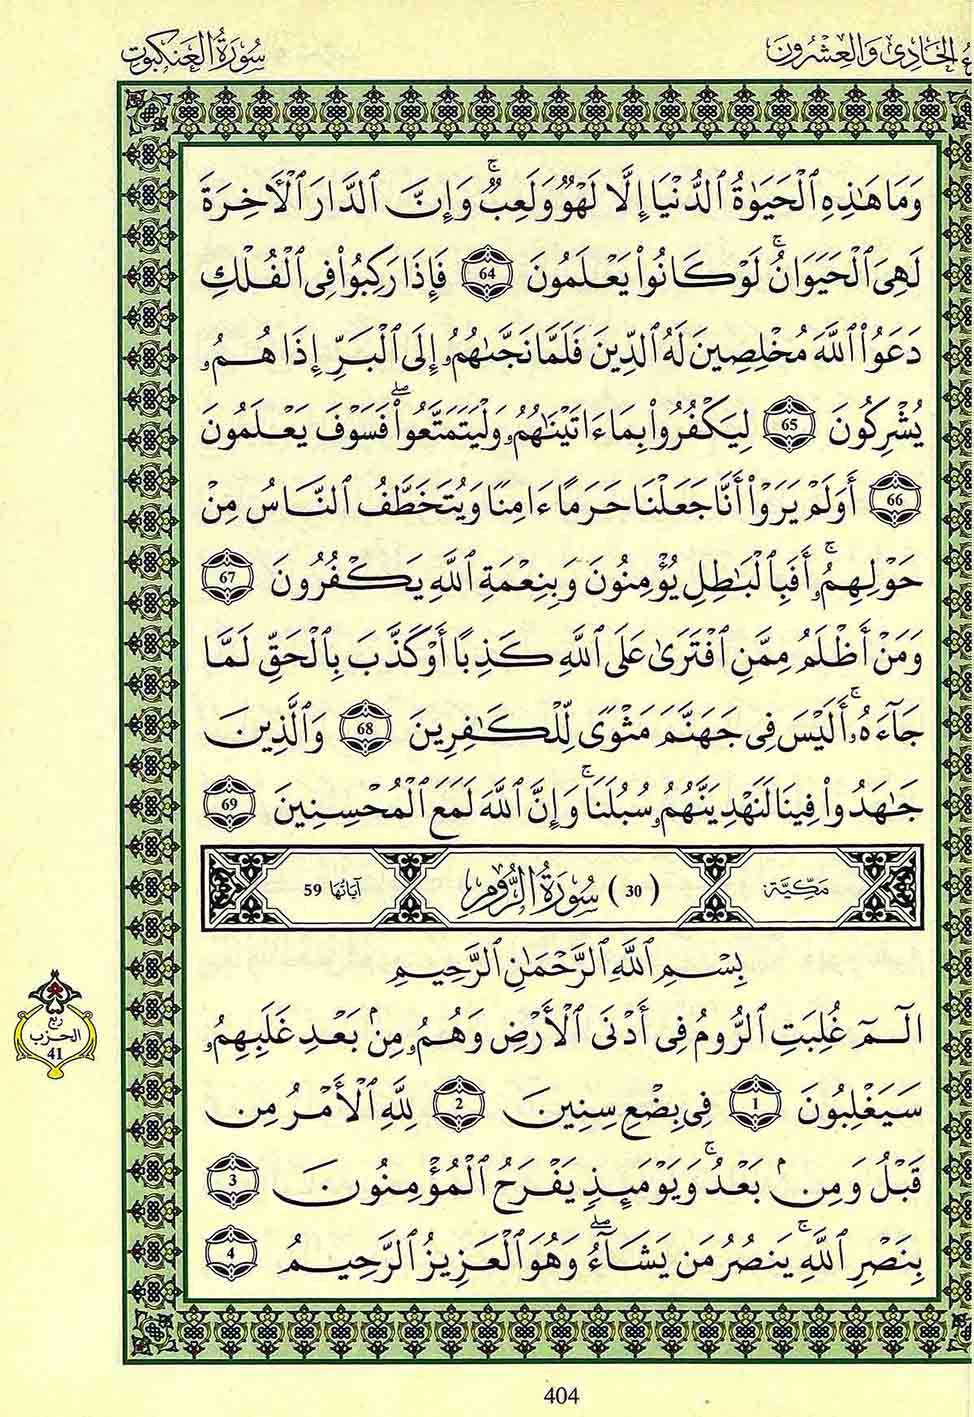 ءُ الحَادِي وَالعِشْرُونَ
سُورَةُ العَنكَبُوت
وَمَا هَٰذِهِ ٱلْحَيَوٰةُ ٱلدُّنْيَا إِلَّا لَهْوٌ وَلَعِبٌ ۚ وَإِنَّ ٱلدَّارَ ٱلْأَخِرَةَ
لَهِيَ ٱلْحَيَوَانُ ۚ لَوْ كَانُوا۟ يَعْلَمُونَ 64 فَإِذَا رَكِبُوا۟ فِي ٱلْفُلْكِ
دَعَوُا۟ ٱللَّهَ مُخْلِصِينَ لَهُ ٱلدِّينَ فَلَمَّا نَجَّىٰهُمُۥ إِلَى ٱلْبَرِّ إِذَا هُمُۥ
يُشْرِكُونَ 65 لِيَكْفُرُوا۟ بِمَا ءَاتَيْنَٰهُمُۥ وَلْيَتَمَتَّعُوا۟ ۖ فَسَوْفَ يَعْلَمُونَ
66 أَوَلَمْ يَرَوْا۟ أَنَّا جَعَلْنَا حَرَمًا ءَامِنًا وَيُتَخَطَّفُ ٱلنَّاسُ مِنْ
حَوْلِهِمُۥ ۚ أَفَبِٱلْبَٰطِلِ يُؤْمِنُونَ وَبِنِعْمَةِ ٱللَّهِ يَكْفُرُونَ 67
وَمَنْ أَظْلَمُ مِمَّنِ ٱفْتَرَىٰ عَلَى ٱللَّهِ كَذِبًا أَوْ كَذَّبَ بِٱلْحَقِّ لَمَّا
جَآءَهُۥ ۚ أَلَيْسَ فِي جَهَنَّمَ مَثْوًى لِّلْكَٰفِرِينَ 68 وَٱلَّذِينَ
جَٰهَدُوا۟ فِينَا لَنَهْدِيَنَّهُمُۥ سُبُلَنَا ۚ وَإِنَّ ٱللَّهَ لَمَعَ ٱلْمُحْسِنِينَ 69
مَكِّيَّة (30) سُورَةُ الرُّومِ آيَاتُهَا 59
بِسْمِ ٱللَّهِ ٱلرَّحْمَٰنِ ٱلرَّحِيمِ
الٓمٓ غُلِبَتِ ٱلرُّومُ فِي أَدْنَى ٱلْأَرْضِ وَهُمُۥ مِنۢ بَعْدِ غَلَبِهِمُۥ
سَيَغْلِبُونَ 1 فِي بِضْعِ سِنِينَ 2 لِلَّهِ ٱلْأَمْرُ مِن
قَبْلُ وَمِنۢ بَعْدُ ۚ وَيَوْمَئِذٍ يَفْرَحُ ٱلْمُؤْمِنُونَ 3
بِنَصْرِ ٱللَّهِ ۚ يَنصُرُ مَن يَشَآءُ ۖ وَهُوَ ٱلْعَزِيزُ ٱلرَّحِيمُ 4
ربع
الحزب
41
404